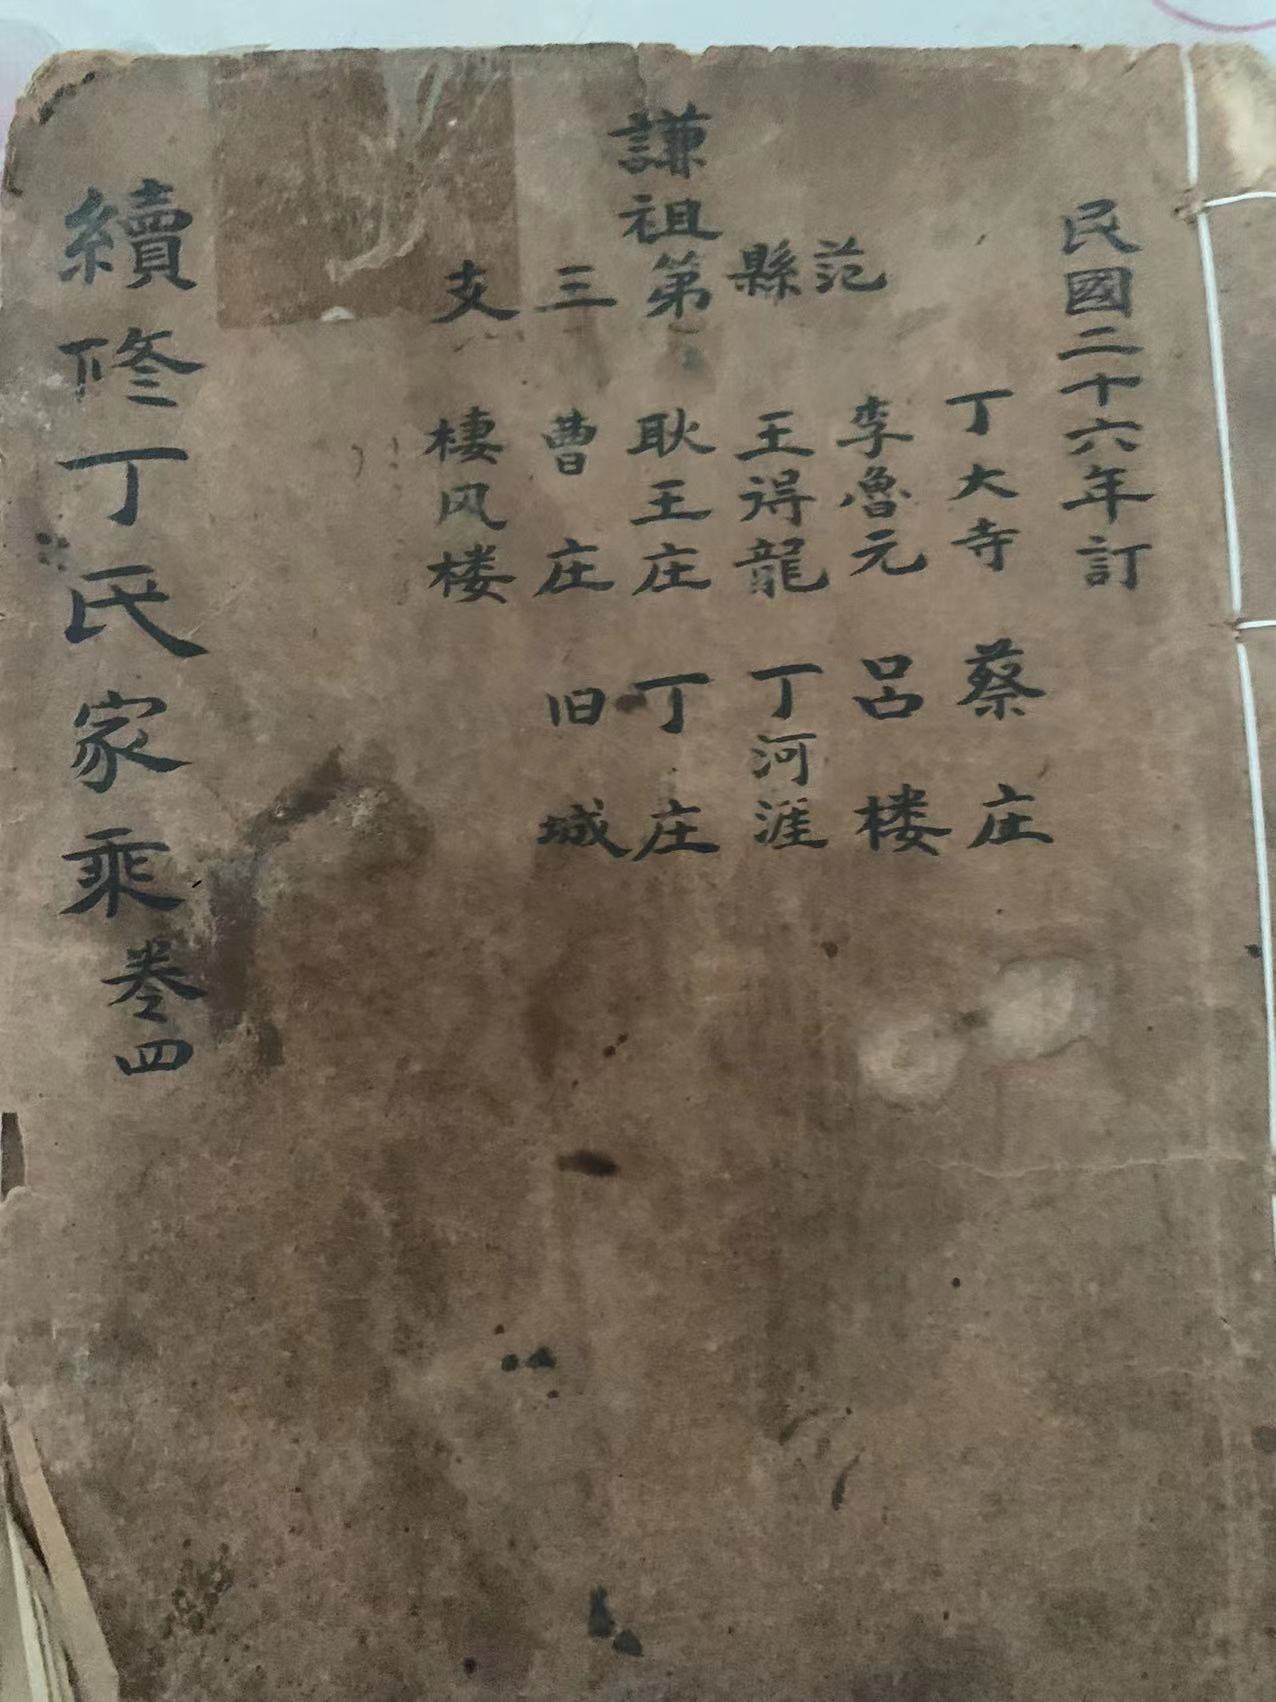 民國二十六年訂
謙祖
范縣第三支
丁大寺 蔡庄
李魯元 吕楼
王得龍 丁河涯
耿王庄 丁庄
曹庄 旧城
棲风楼
續修丁氏家乘卷四